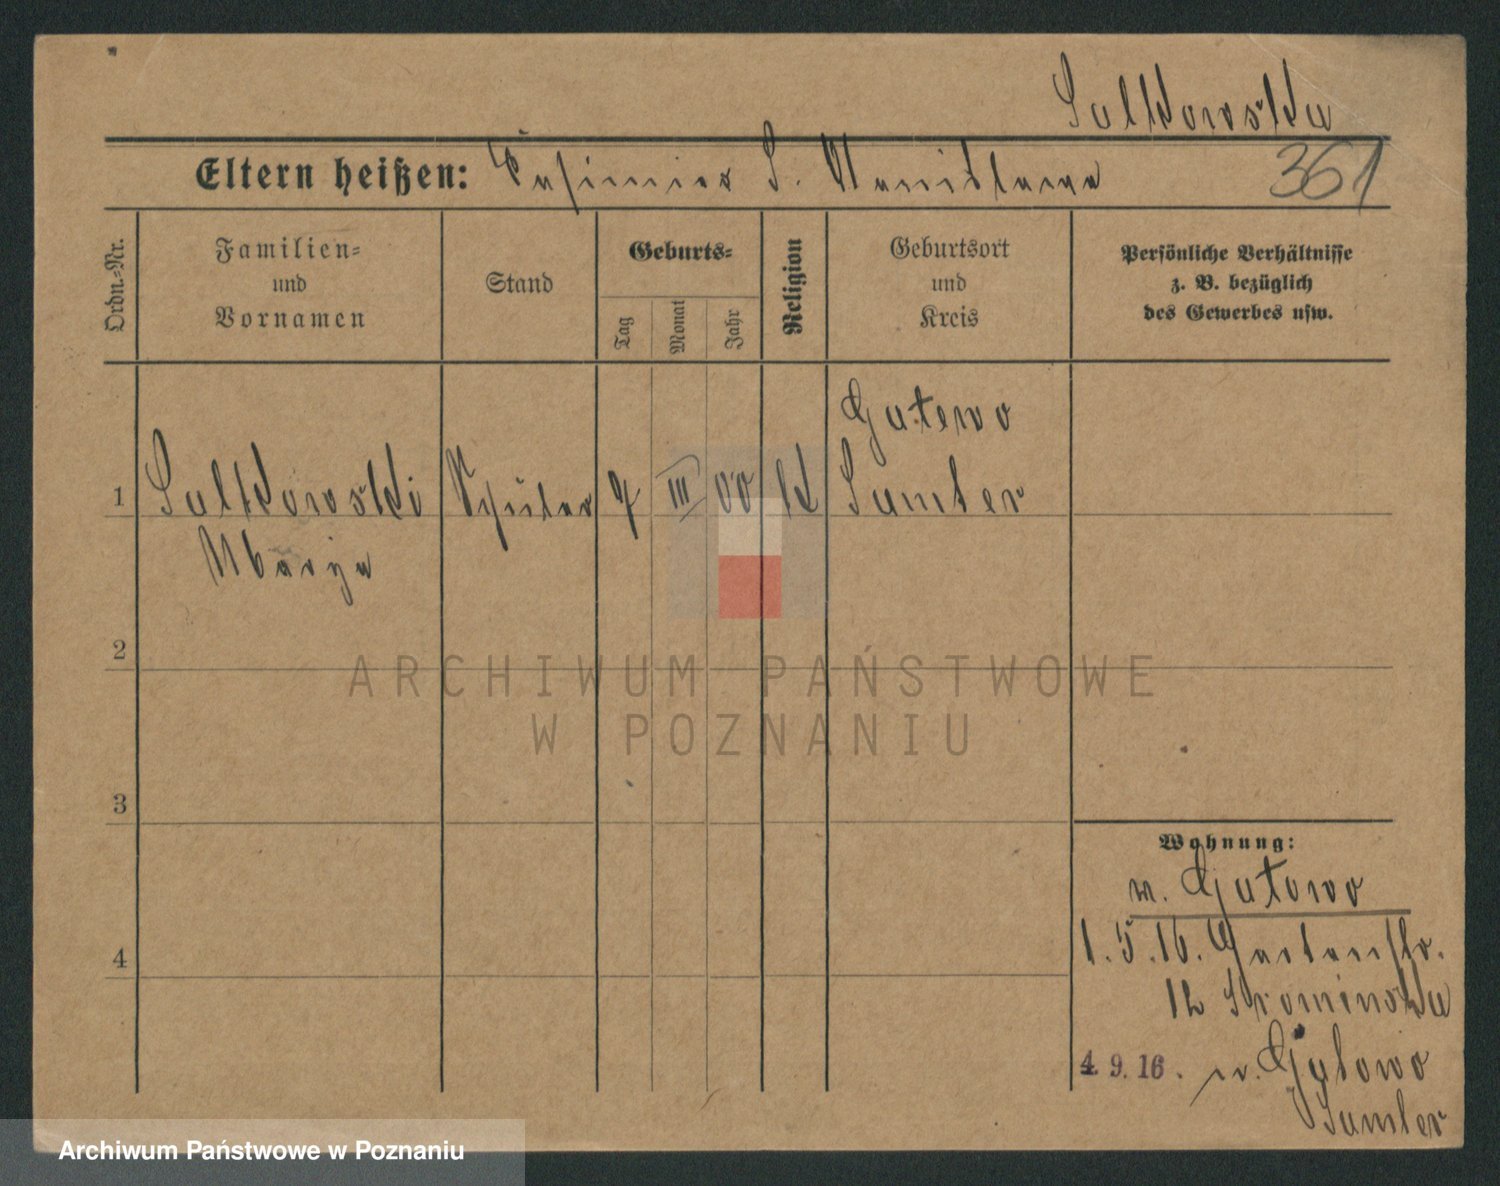 Sulkowska
Eltern heißen: Casimier S. Stanislawa
361
Ordn.-Nr.
Familien-
und
Vornamen
Stand
Geburts-
Tag
Monat
Jahr
Religion
Geburtsort
und
Kreis
Persönliche Verhältnisse
z. B. bezüglich
des Gewerbes usw.
Gutowo
1 Sulkowski Schüler 7 III 00 k Samter
Marya
2
ARCHIWUM PAŃSTWOWE
W POZNANIU
3
Wohnung:
n. Gutowo
4
1.5.16. Gartenstr.
12
4.9.16. n. Gutowo
Samter
Archiwum Państwowe w Poznaniu